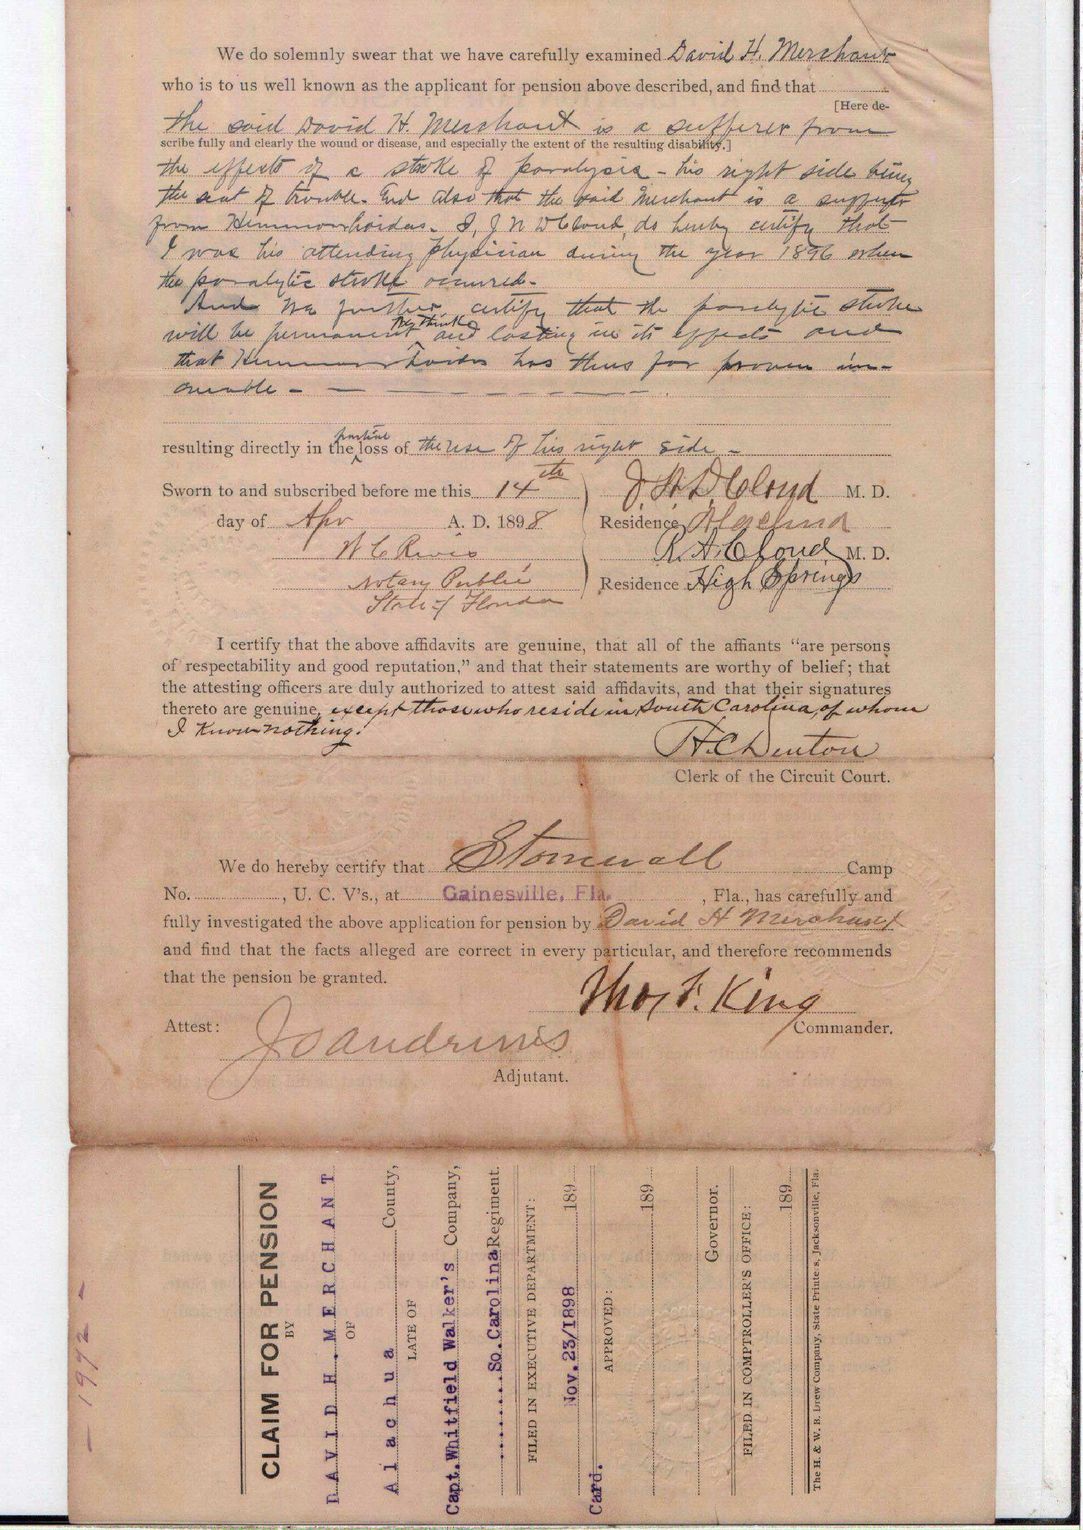 We do solemnly swear that we have carefully examined David H. Merchant
who is to us well known as the applicant for pension above described, and find that
[Here de-
the said David H. Merchant is a sufferer from
scribe fully and clearly the wound or disease, and especially the extent of the resulting disability.]
the effects of a stroke of paralysis - his right side being
the seat of trouble. And also that the said Merchant is a sufferer
from Hemmorrhoides. I, J N D Cloud, do hereby certify that
I was his attending physician during the year 1896 when
the paralytic stroke occured.
And we further certify that the paralytic stroke
we think
will be permanent and lasting in its effects and
that Hemmorrhoides has thus far proven in-
curable -
partial
resulting directly in the loss of the use of his right side -
Sworn to and subscribed before me this 14th
day of Apr A. D. 1898
W C Rivis
Notary Public
State of Florida
J. N. D. Cloud M. D.
Residence
R. A. Cloud M. D.
Residence High Springs
I certify that the above affidavits are genuine, that all of the affiants "are persons
of respectability and good reputation," and that their statements are worthy of belief; that
the attesting officers are duly authorized to attest said affidavits, and that their signatures
thereto are genuine, except those who reside in South Carolina, of whom
I know nothing.
H. C. Denton
Clerk of the Circuit Court.
We do hereby certify that Stonewall Camp
No. , U. C. V's., at Gainesville, Fla. , Fla., has carefully and
fully investigated the above application for pension by David H Merchant
and find that the facts alleged are correct in every particular, and therefore recommends
that the pension be granted.
Thos F. King
Commander.
Attest: J O Andrews
Adjutant.
- 1992 -
CLAIM FOR PENSION
BY
DAVID H. MERCHANT
OF
Alachua County,
LATE OF
Capt. Whitfield Walker's Company,
So. Carolina Regiment.
FILED IN EXECUTIVE DEPARTMENT:
Nov. 23/1898 189
Card.
APPROVED:
189
Governor.
FILED IN COMPTROLLER'S OFFICE:
189
The H. & W. B. Drew Company, State Printers, Jacksonville, Fla.